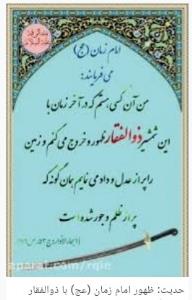 امام زمان (عج)
می فرمایند:
من آن کسی هستم که در آخر زمان با
این شمشیر ذوالفقار ظهور و خروج می کنم و زمین
را پر از عدل و داد می نمایم همان گونه که
پر از ظلم و جور شده است
aparat.com/rqie
حدیث: ظهور امام زمان (عج) با ذوالفقار